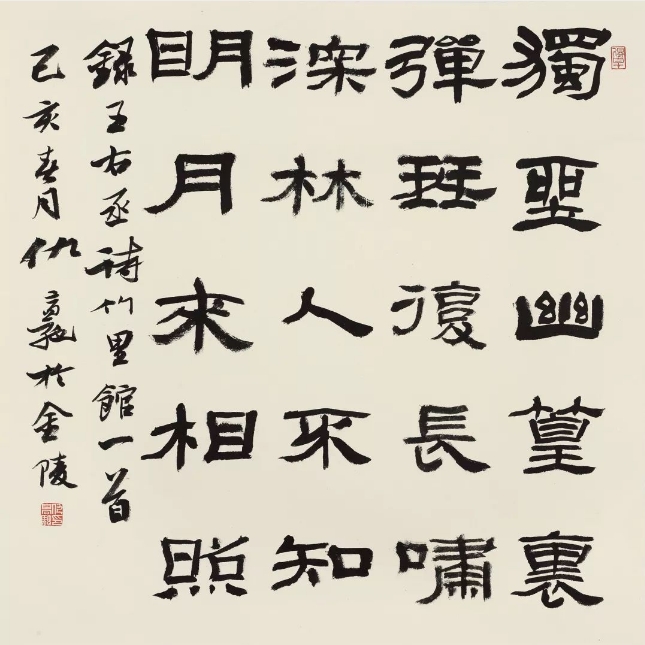 獨坐幽篁裏
彈琴復長嘯
深林人不知
明月來相照
錄王右丞詩竹里館一首
己亥春月仇於金陵